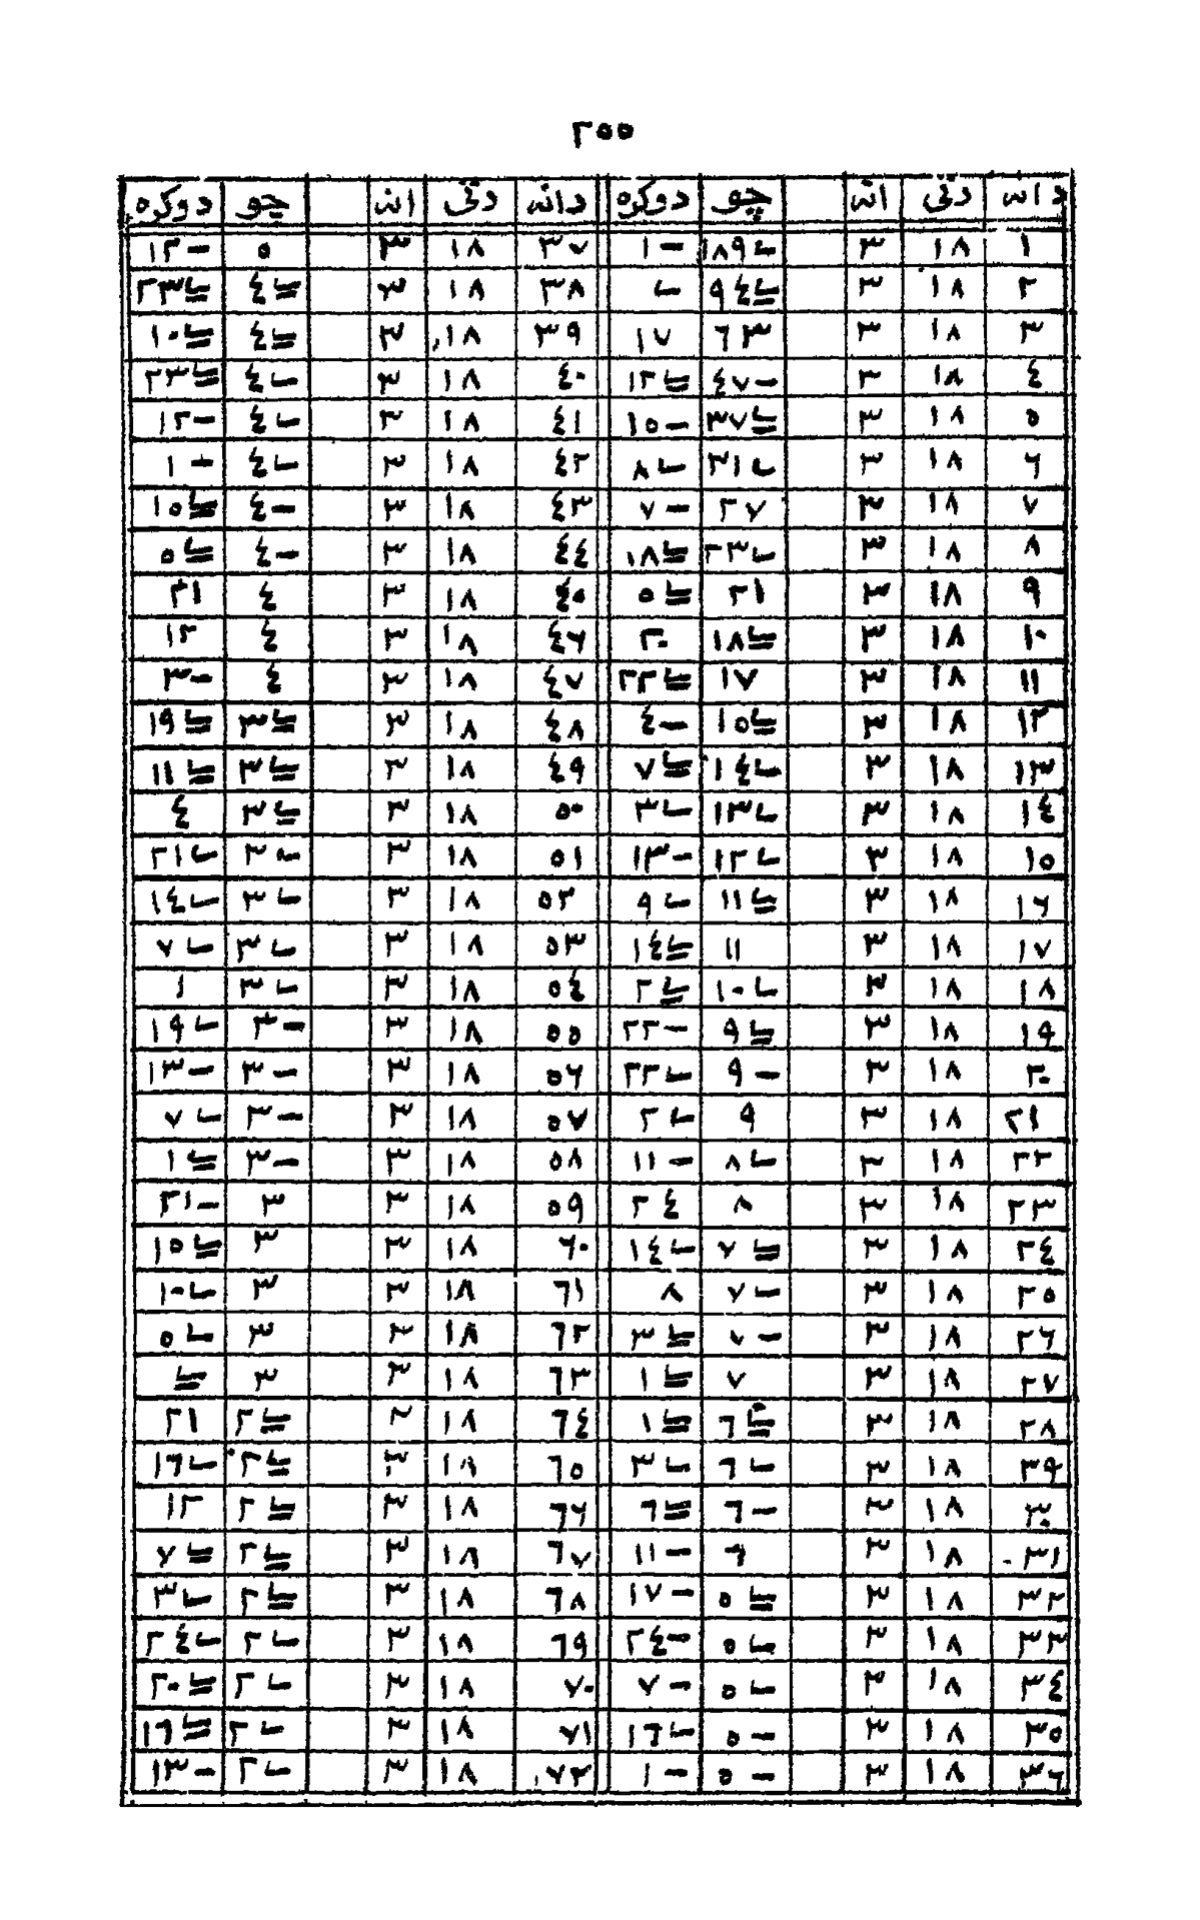 ٢٥٥
دانه دقي انه چو دوكره دانه دقي انه چو دوكره
١ ١٨ ٣ ١٨٩ ١- ٣٧ ١٨ ٣ ٥ ١٢-
٢ ١٨ ٣ ٩٤ ٣٨ ١٨ ٣ ٤ ٢٣
٣ ١٨ ٣ ٦٣ ١٧ ٣٩ ١٨ ٣ ٤ ١٠
٤ ١٨ ٣ ٤٧- ١٢ ٤٠ ١٨ ٣ ٤ ٢٣
٥ ١٨ ٣ ٣٧ ١٥- ٤١ ١٨ ٣ ٤ ١٢-
٦ ١٨ ٣ ٣١ ٨ ٤٢ ١٨ ٣ ٤ ١-
٧ ١٨ ٣ ٢٧ ٧- ٤٣ ١٨ ٣ ٤- ١٥
٨ ١٨ ٣ ٢٣ ١٨ ٤٤ ١٨ ٣ ٤- ٥
٩ ١٨ ٣ ٢١ ٥ ٤٥ ١٨ ٣ ٤ ٢١
١٠ ١٨ ٣ ١٨ ٢٠ ٤٦ ١٨ ٣ ٤ ١٢
١١ ١٨ ٣ ١٧ ٢٢ ٤٧ ١٨ ٣ ٤ ٣-
١٢ ١٨ ٣ ١٥ ٤- ٤٨ ١٨ ٣ ٣ ١٩
١٣ ١٨ ٣ ١٤ ٧ ٤٩ ١٨ ٣ ٣ ١١
١٤ ١٨ ٣ ١٣ ٣ ٥٠ ١٨ ٣ ٣ ٤
١٥ ١٨ ٣ ١٢ ١٣- ٥١ ١٨ ٣ ٣ ٢١
١٦ ١٨ ٣ ١١ ٩ ٥٢ ١٨ ٣ ٣ ١٤
١٧ ١٨ ٣ ١١ ١٤ ٥٣ ١٨ ٣ ٣ ٧
١٨ ١٨ ٣ ١٠ ٢ ٥٤ ١٨ ٣ ٣ ١
١٩ ١٨ ٣ ٩ ٢٢- ٥٥ ١٨ ٣ ٣- ١٩
٢٠ ١٨ ٣ ٩- ٢٢ ٥٦ ١٨ ٣ ٣- ١٣-
٢١ ١٨ ٣ ٩ ٢ ٥٧ ١٨ ٣ ٣- ٧
٢٢ ١٨ ٣ ٨ ١١- ٥٨ ١٨ ٣ ٣- ١
٢٣ ١٨ ٣ ٨ ٢٤ ٥٩ ١٨ ٣ ٣ ٢١-
٢٤ ١٨ ٣ ٧ ١٤ ٦٠ ١٨ ٣ ٣ ١٥
٢٥ ١٨ ٣ ٧ ٨ ٦١ ١٨ ٣ ٣ ١٠
٢٦ ١٨ ٣ ٧- ٣ ٦٢ ١٨ ٣ ٣ ٥
٢٧ ١٨ ٣ ٧ ١ ٦٣ ١٨ ٣ ٣
٢٨ ١٨ ٣ ٦ ١ ٦٤ ١٨ ٣ ٢ ٢١
٢٩ ١٨ ٣ ٦ ٣ ٦٥ ١٨ ٣ ٢ ١٦
٣٠ ١٨ ٣ ٦- ٦ ٦٦ ١٨ ٣ ٢ ١٢
٣١ ١٨ ٣ ٦ ١١- ٦٧ ١٨ ٣ ٢ ٧
٣٢ ١٨ ٣ ٥ ١٧- ٦٨ ١٨ ٣ ٢ ٣
٣٣ ١٨ ٣ ٥ ٢٤- ٦٩ ١٨ ٣ ٢ ٢٤
٣٤ ١٨ ٣ ٥ ٧- ٧٠ ١٨ ٣ ٢ ٢٠
٣٥ ١٨ ٣ ٥- ١٦ ٧١ ١٨ ٣ ٢ ١٦
٣٦ ١٨ ٣ ٥- ١- ٧٢ ١٨ ٣ ٢ ١٣-